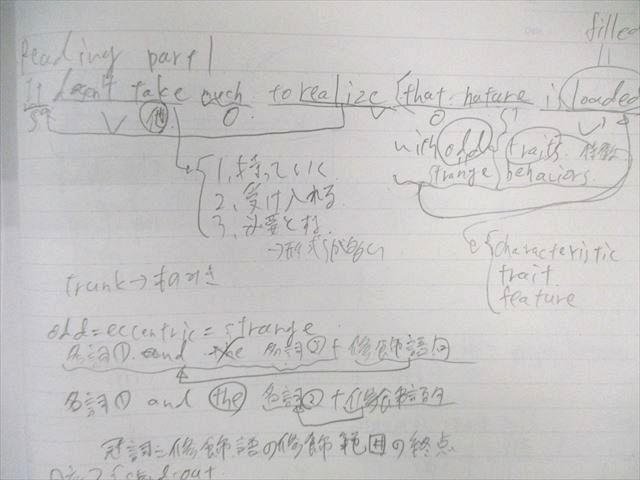 filled
Reading part 1
It doesn't take much to realize {that nature is loaded
S V 他 O V O S' V'
with odd traits 特徴
strange behaviors.
1, 持っていく
2, 受け入れる
3, 必要とする
→形式S
characteristic
trait
feature
trunk→
odd=eccentric=strange
名詞① and the 名詞②+修飾語句
名詞① and the 名詞②+修飾語句
冠詞=修飾語の修飾範囲の終点